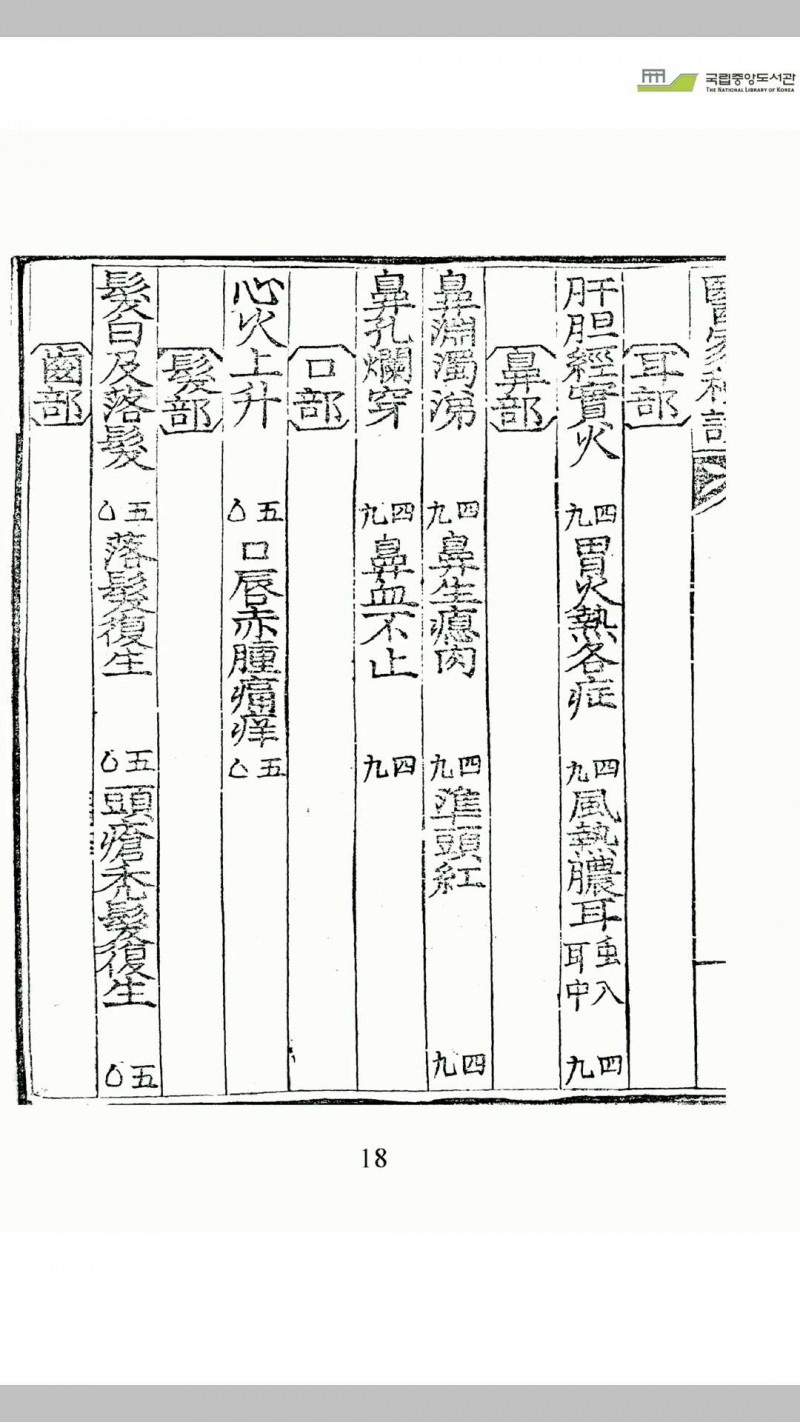 국립중앙도서관
THE NATIONAL LIBRARY OF KOREA
耳部
肝胆經實火 四九 胃火熱各症 四九 風熱膿耳 虫入耳中 四九
鼻部
鼻淵濁涕 四九 鼻生瘜肉 四九 準頭紅 四九
鼻孔爛穿 四九 鼻血不止 四九
口部
心火上升 五〇 口唇赤腫痛痒 五〇
髮部
髮白及落髮 五〇 落髮復生 五〇 頭瘡禿髮復生 五〇
齒部
18